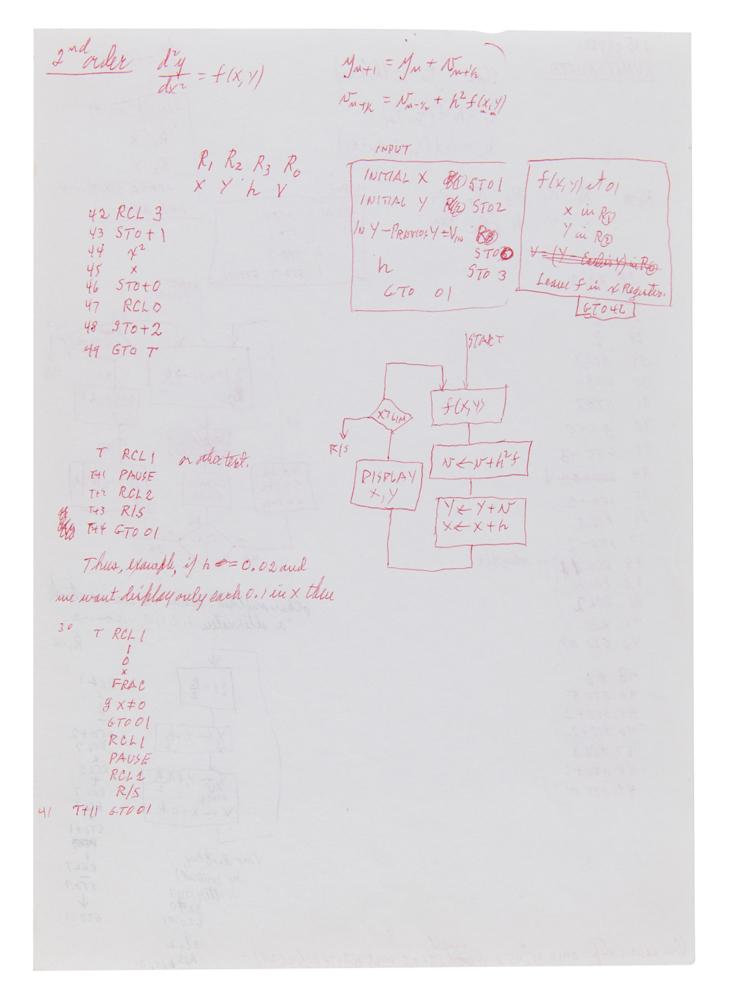 2nd order d²y/dx² = f(x, y)
y_{n+1} = y_n + v_{n+½}
v_{n+½} = v_{n-½} + h² f(x, y)
R1 R2 R3 R0
X Y h V
42 RCL 3
43 STO+1
44 x²
45 x
46 STO+0
47 RCL 0
48 STO+2
49 GTO T
INPUT
INITIAL X STO1
INITIAL Y STO2
IN Y-PREVIOUS Y = VIN
STO0
h STO 3
GTO 01
f(x, y) at 01
X in R①
Y in R②
Leave f in X Register.
GTO42
START
f(x, y)
v ← v + h²f
Y ← Y + v
X ← X + h
X>LIM
R/S
DISPLAY
X, Y
T RCL 1
T+1 PAUSE
T+2 RCL2
T+3 R/S
T+4 GTO 01
Thus, example, if h = 0.02 and
we want display only each 0.1 in x then
30 T RCL 1
1
0
x
FRAC
g x≠0
GTO01
RCL1
PAUSE
RCL2
R/S
41 T+11 GTO01